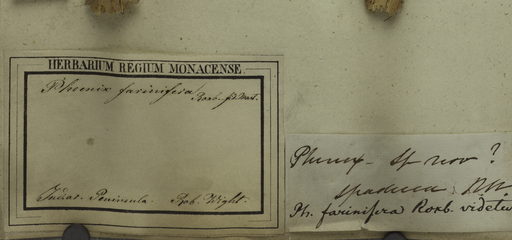 HERBARIUM REGIUM MONACENSE.
Phoenix farinifera
Roxb. fid. Mart.
Indiae Peninsula. Rob. Wight.
Phoenix - Sp nov?
Ph. farinifera Roxb. videtur